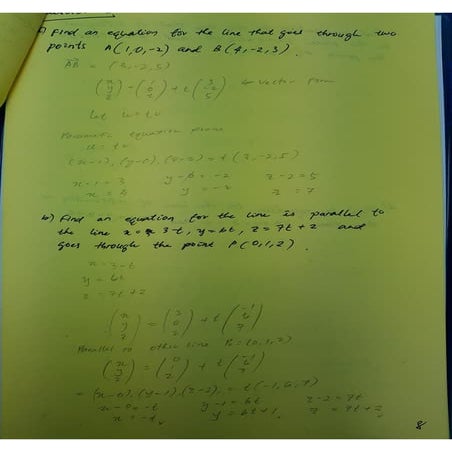 a) Find an equation for the line that goes through two
points A(1,0,-2) and B(4,-2,3).
AB = (3,-2,5)
(x y z) = (1 0 2) + t(3 -2 5) Vector form
Let u = tv
Parametric equation
u = tv
(x-1), (y-0), (z-2) = t(3,-2,5)
x-1=3 y-0=-2 z-2=5
x=4 y=-2 z=7
b) Find an equation for the line is parallel to
the line x = 3-t, y=6t, z=7t+2 and
goes through the point P(0,1,2).
x = 3-t
y = 6t
z = 7t+2
(x y z) = (3 0 2) + t(-1 6 7)
Parallel to other line P=(0,1,2)
(x y z) = (0 1 2) + t(-1 6 7)
= (x-0), (y-1), (z-2), = t(-1,6,7)
x-0=-t y-1=6t z-2=7t
x=-t y=6t+1 z=7t+2
8